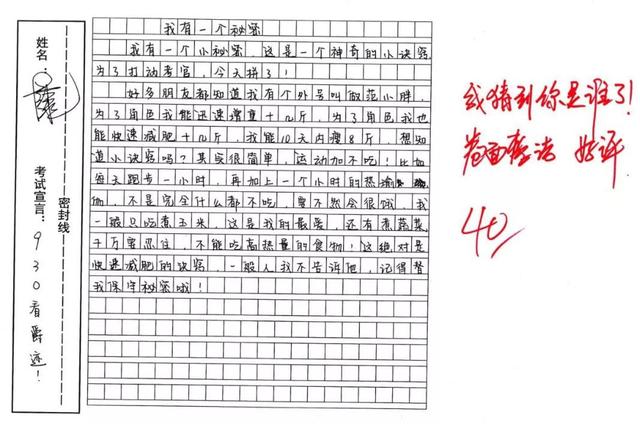 姓名:
考试宣言:930看爵迹!
密封线
我有一个秘密
我有一个小秘密,这是一个神奇的小诀窍
为了打动考官,今天拼了!
好多朋友都知道我有个外号叫做范小胖,
为了角色我能迅速增重十几斤,为了角色我也
能快速减肥十几斤,我能10天内瘦8斤,想知
道小诀窍吗?其实很简单,运动加不吃!比如
每天跑步一小时,再加上一个小时的热瑜
伽,不是完全什么都不吃,要不然会很饿,我
一般只吃煮玉米,这是我的最爱,还有煮蔬菜
千万要忍住,不能吃高热量的食物!这绝对是
快速减肥的诀窍,一般人我不告诉他,记得替
我保守秘密哦!
我猜到你是谁了!
卷面整洁 好评
40